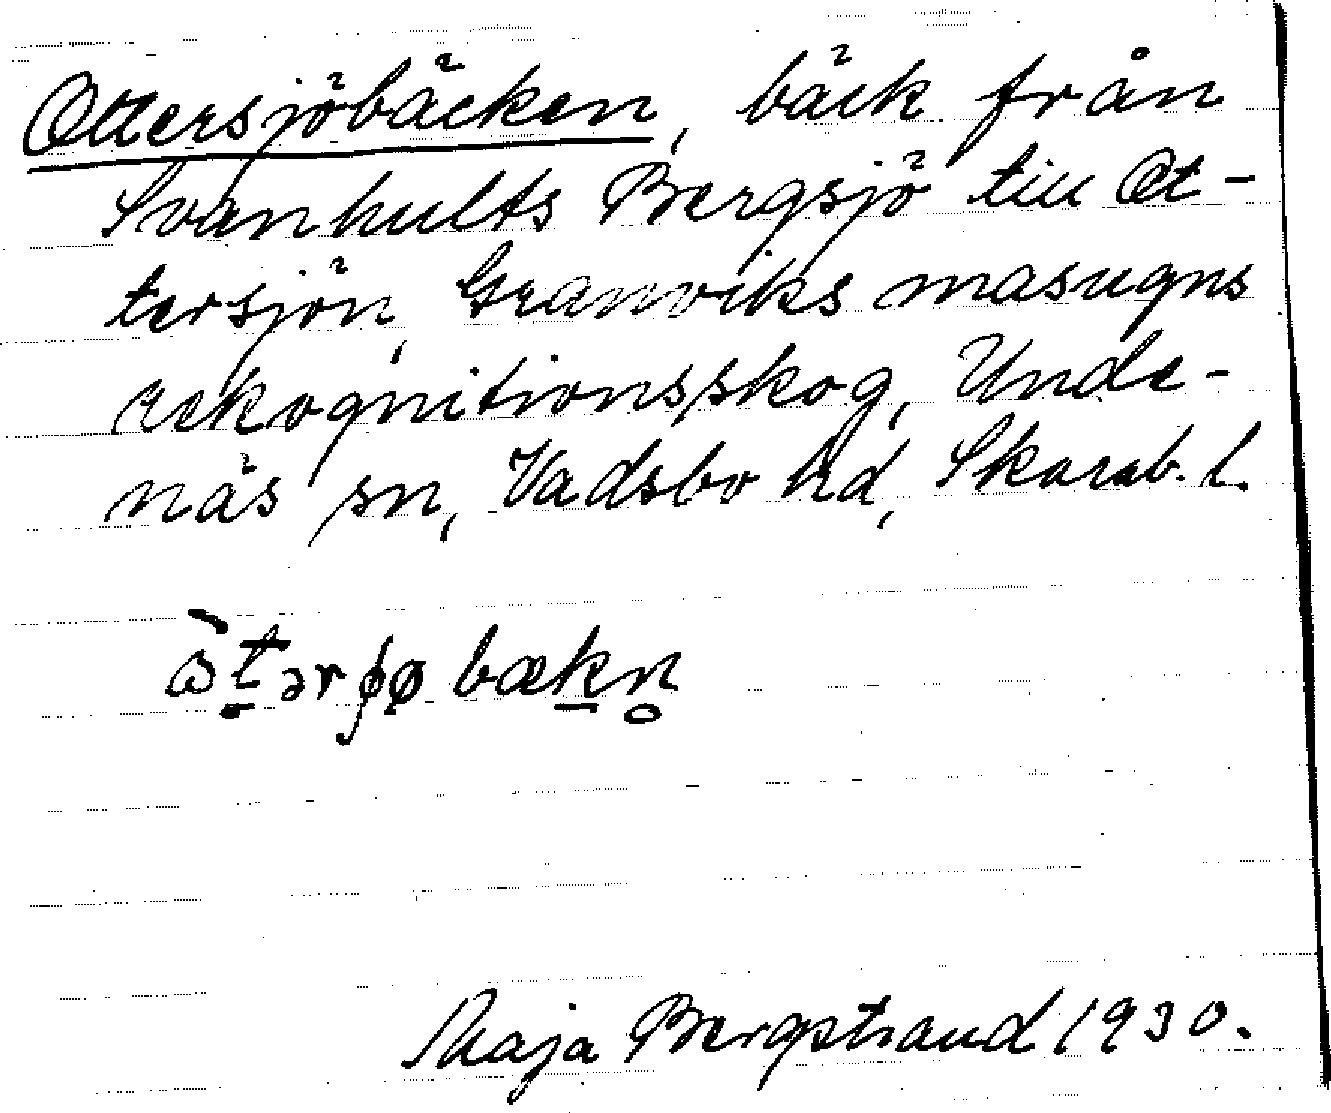 Ottersjöbäcken, bäck från
Svanhults Bergsjö till Ot-
tersjön, Granviks masugns
rekognitionsskog, Unde-
näs sn, Vadsbo hd, Skarab. l.
Maja Bergstrand 1930.